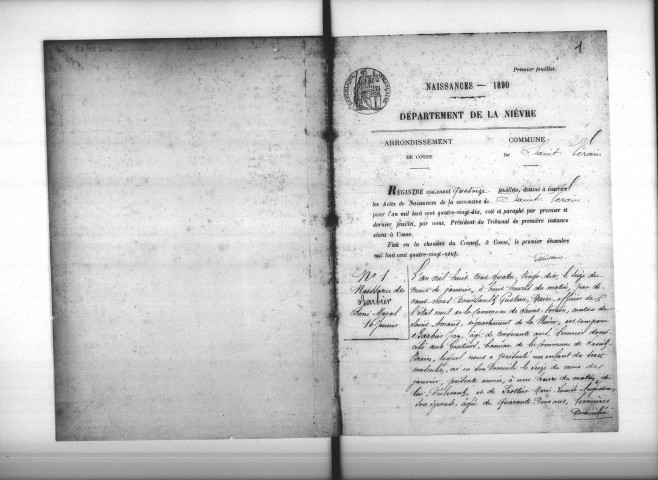 1
Premier feuillet.
NAISSANCES — 1890
DÉPARTEMENT DE LA NIÈVRE
ARRONDISSEMENT
DE COSNE
COMMUNE
DE Saint Vérain
REGISTRE contenant quatorze feuillets, destiné à inscrire
les Actes de Naissances de la commune de Saint Vérain
pour l'an mil huit cent quatre-vingt-dix, coté et paraphé par premier et
dernier feuillet, par nous, Président du Tribunal de première instance
séant à Cosne.
Fait en la chambre du Conseil, à Cosne, le premier décembre
mil huit cent quatre-vingt-neuf.
No 1
Naissance de
Barbier
René
16 Janvier
L'an mil huit cent quatre vingt dix, le seize du
mois de janvier, à heures du matin, par de-
vant nous Gustave, Marie, officier de
l'état civil de la Commune de Saint Vérain, canton de
Saint Amand, département de la Nièvre, est comparu
Barbier Jean, âgé de cinquante ans, domi-
cilié aux hameau de la Commune de Saint
Vérain, lequel nous a présenté un enfant du sexe
masculin, né en son domicile le seize du mois de
janvier, présente année, à une heure du matin, de
lui Déclarant, et de Marie Louise Augustine
son épouse, âgée de quarante deux ans,